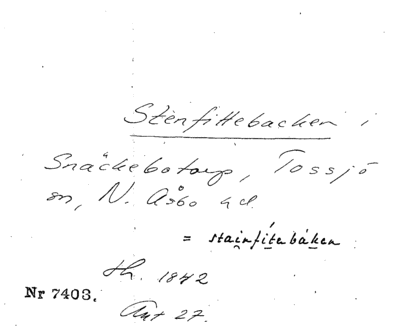 Stenfittebacken i
Snäckebotorp, Tossjö
sn, N. Åsbo hd.
= stainfitebáken
th. 1842
Nr 7403.
Ant 27.